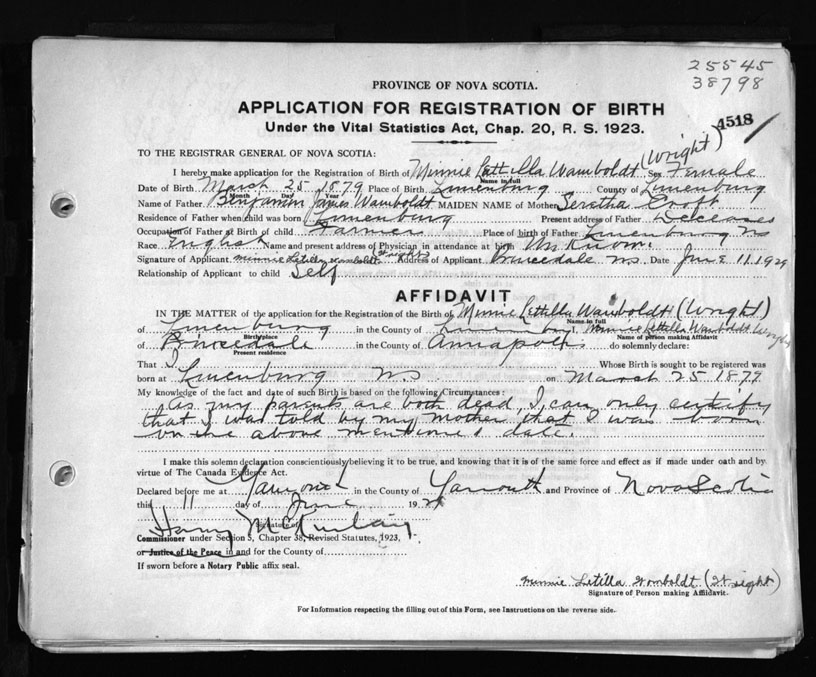 25545
38798
PROVINCE OF NOVA SCOTIA.
APPLICATION FOR REGISTRATION OF BIRTH
4518
Under the Vital Statistics Act, Chap. 20, R. S. 1923.
TO THE REGISTRAR GENERAL OF NOVA SCOTIA:
I hereby make application for the Registration of Birth of Minnie Lettilla Wamboldt (Wright) Sex Female
Name in full
Date of Birth March 25 1879 Place of Birth Lunenburg County of Lunenburg
Month Day Year
Name of Father Benjamin James Wamboldt MAIDEN NAME of Mother Seretha Croft
Residence of Father when child was born Lunenburg Present address of Father Deceased
Occupation of Father at Birth of child Farmer Place of birth of Father Lunenburg NS
Race English Name and present address of Physician in attendance at birth Unknown.
Signature of Applicant Minnie Letilla Womboldt Wright Address of Applicant Princedale NS. Date June 11 1929
Relationship of Applicant to child Self
AFFIDAVIT
IN THE MATTER of the application for the Registration of the Birth of Minnie Lettilla Wamboldt (Wright)
Name in full
of Lunenburg in the County of Lunenburg, I, Minnie Lettilla Wamboldt Wright
Birthplace Name of person making Affidavit
of Princedale in the County of Annapolis do solemnly declare:
Present residence
That I Whose Birth is sought to be registered was
born at Lunenburg NS on March 25 1879
My knowledge of the fact and date of such Birth is based on the following Circumstances:
As my parents are both dead, I can only certify
that I was told by my mother that I was born
on the above mentioned date.
I make this solemn declaration conscientiously believing it to be true, and knowing that it is of the same force and effect as if made under oath and by
virtue of The Canada Evidence Act.
Declared before me at Yarmouth in the County of Yarmouth and Province of Nova Scotia
this 11 day of June 1929
Signature of
Harry McKinlay
Commissioner under Section 5, Chapter 38, Revised Statutes, 1923,
or Justice of the Peace in and for the County of
If sworn before a Notary Public affix seal.
Minnie Letilla Womboldt (Wright)
Signature of Person making Affidavit.
For Information respecting the filling out of this Form, see Instructions on the reverse side.